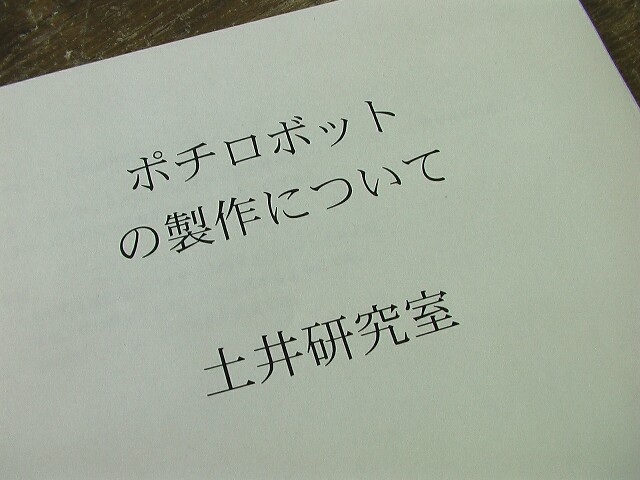 ポチロボット
の製作について
土井研究室